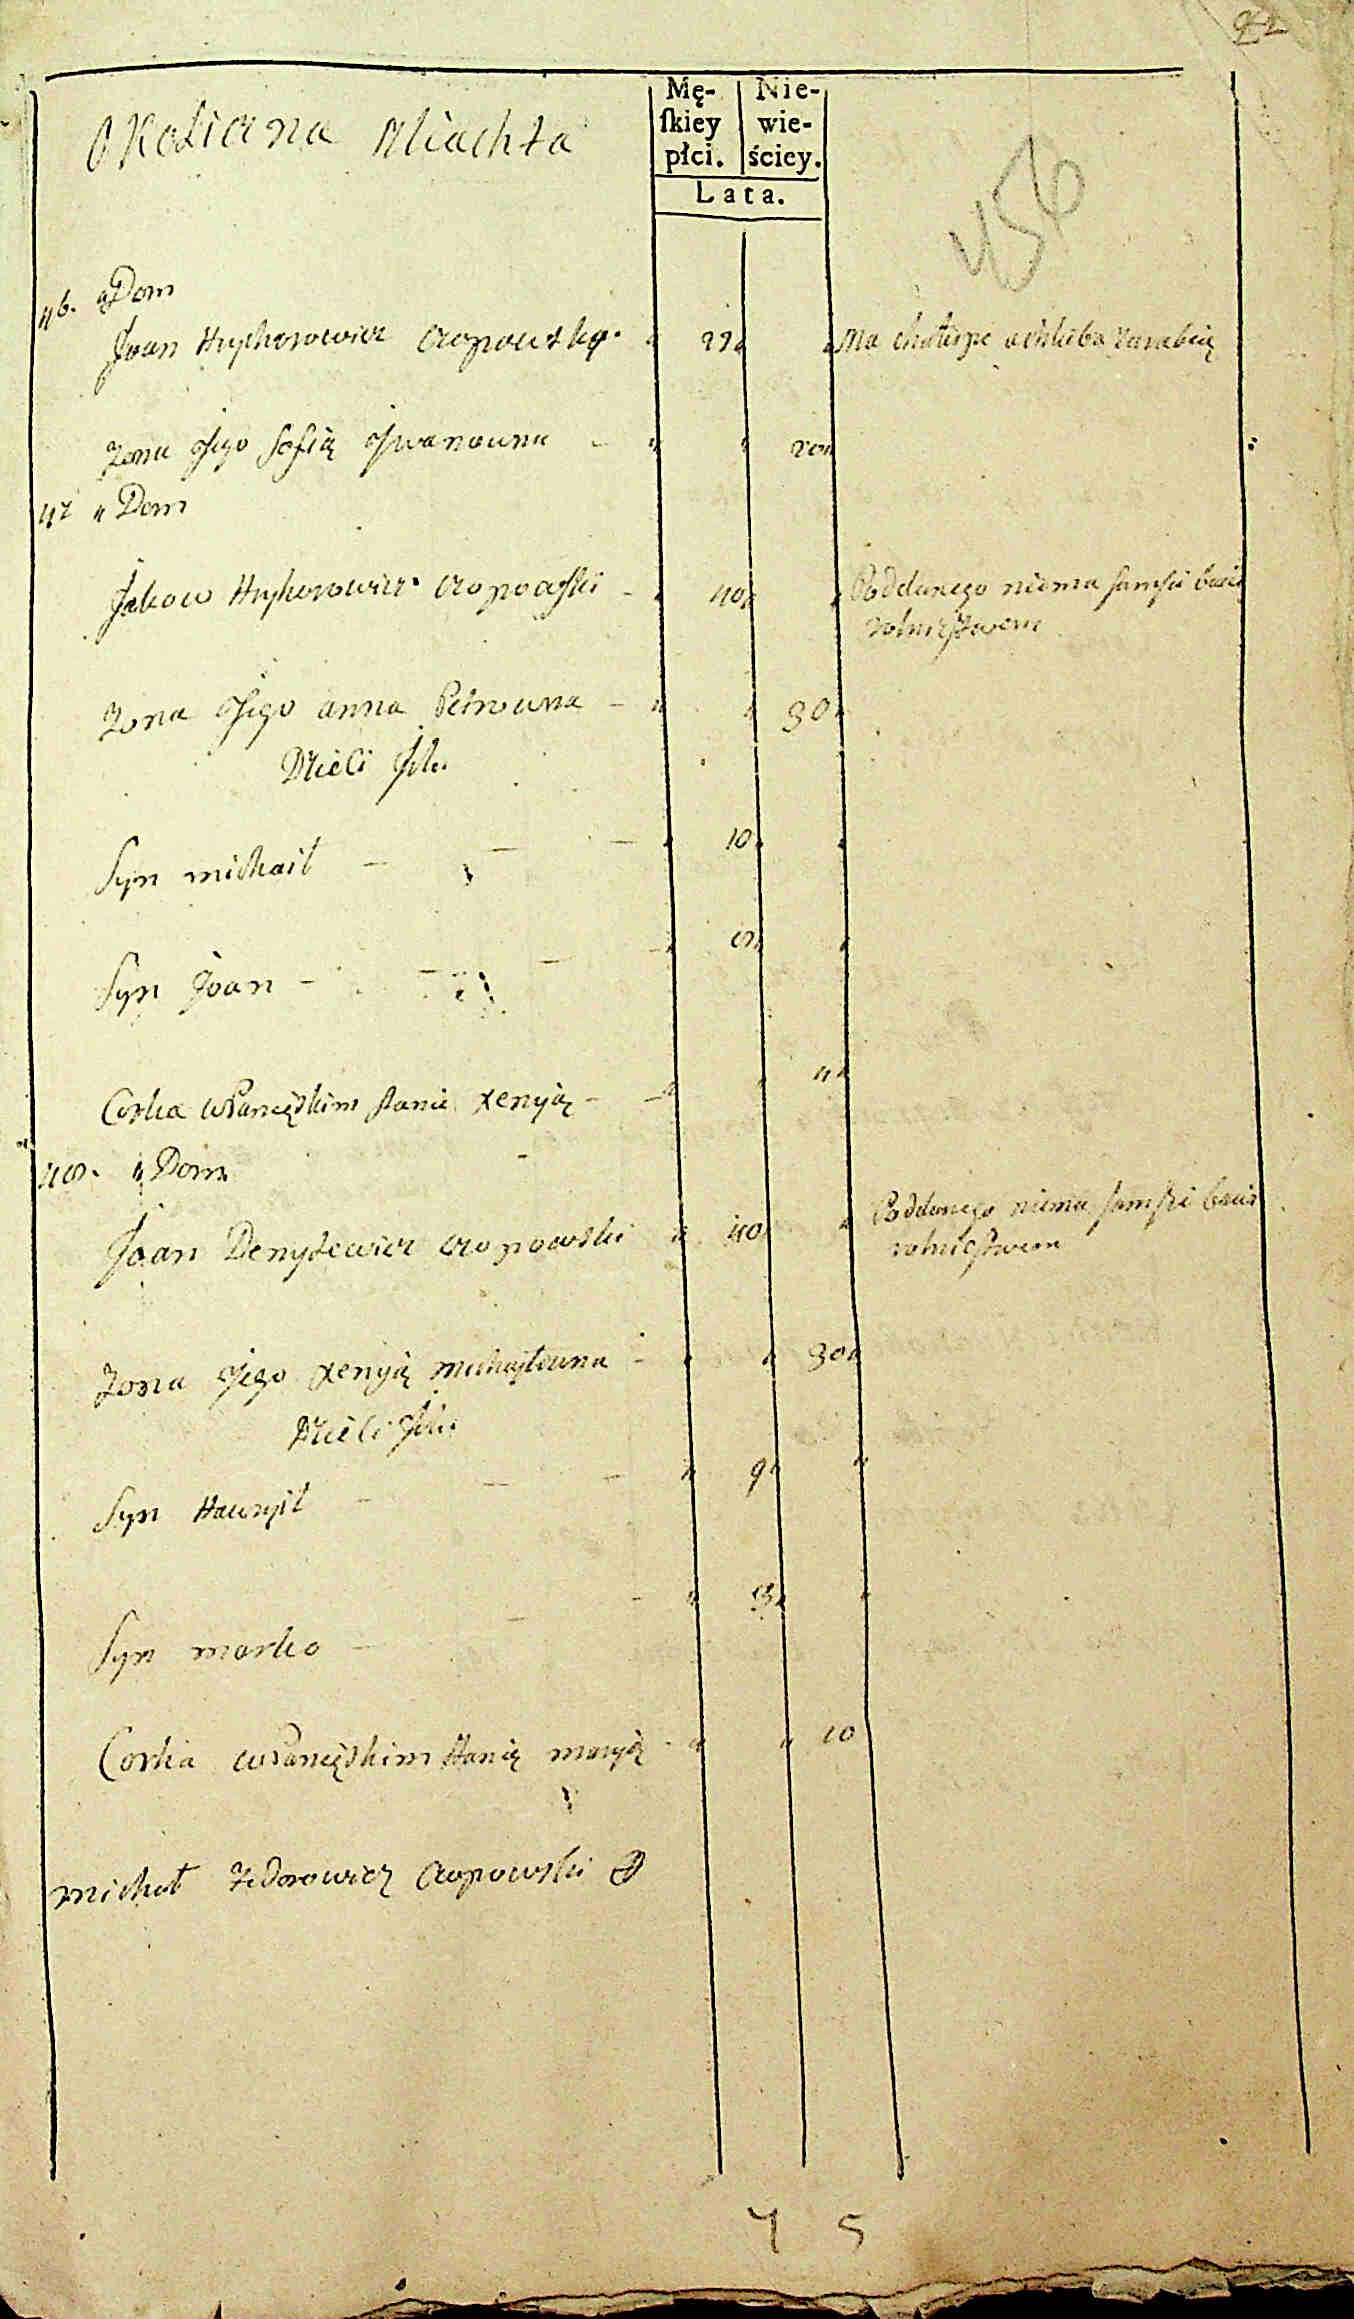 42
Okoliczna Sliachta
Mę-
skiey
płci.
Nie-
wie-
ściey.
Lata.
456
46. " Dom
Joan Hryhorowicz Czopowsky " 22 " " Ma chałupe
Zona Jego Sofią Jwanowna - " " 20 "
47 " Dom
Jakow Hryhorowicz Czopowski - " 40 " " Poddanego niema sam się bawi
rolnictwem
Zona Jego anna Petrowna - " " 30 "
Dzieci Jch
Syn michail - - - " 10 " "
Syn Joan - - - - " 8 " "
Corka w Panięskim stanie Xenyią - - " " 4 "
48. " Dom
Joan Denysewicz Czopowski " 40 " Poddanego niema sam się bawi
rolnictwem
Zona Jego Xenyią michayłowna - " " 30 "
Dzieci Jch
Syn Hawryił - - - " 9 " "
Syn marko - - - " 3 " "
Corka w Panięskim stanię maryią - " " 10
michał Fedorowicz Czopowski
7 5